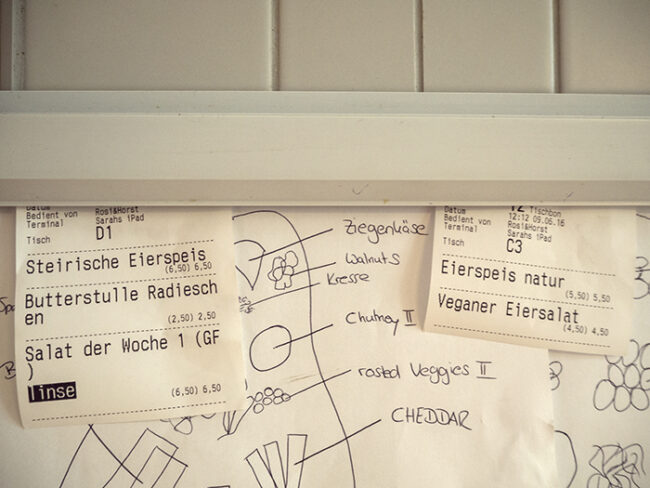 Datum
Bedient von Rosi&Horst
Terminal Sarahs iPad
Tisch D1
Steirische Eierspeis
(6,50) 6,50
Butterstulle Radiesch
en
(2,50) 2,50
Salat der Woche 1 (GF
)
linse
(6,50) 6,50
Ziegenkäse
walnuts
Kresse
Chutney II
rosted Veggies II
CHEDDAR
12 Tischbon
Datum 12:12 09.06.16
Bedient von Rosi&Horst
Terminal Sarahs iPad
Tisch C3
Eierspeis natur
(5,50) 5,50
Veganer Eiersalat
(4,50) 4,50